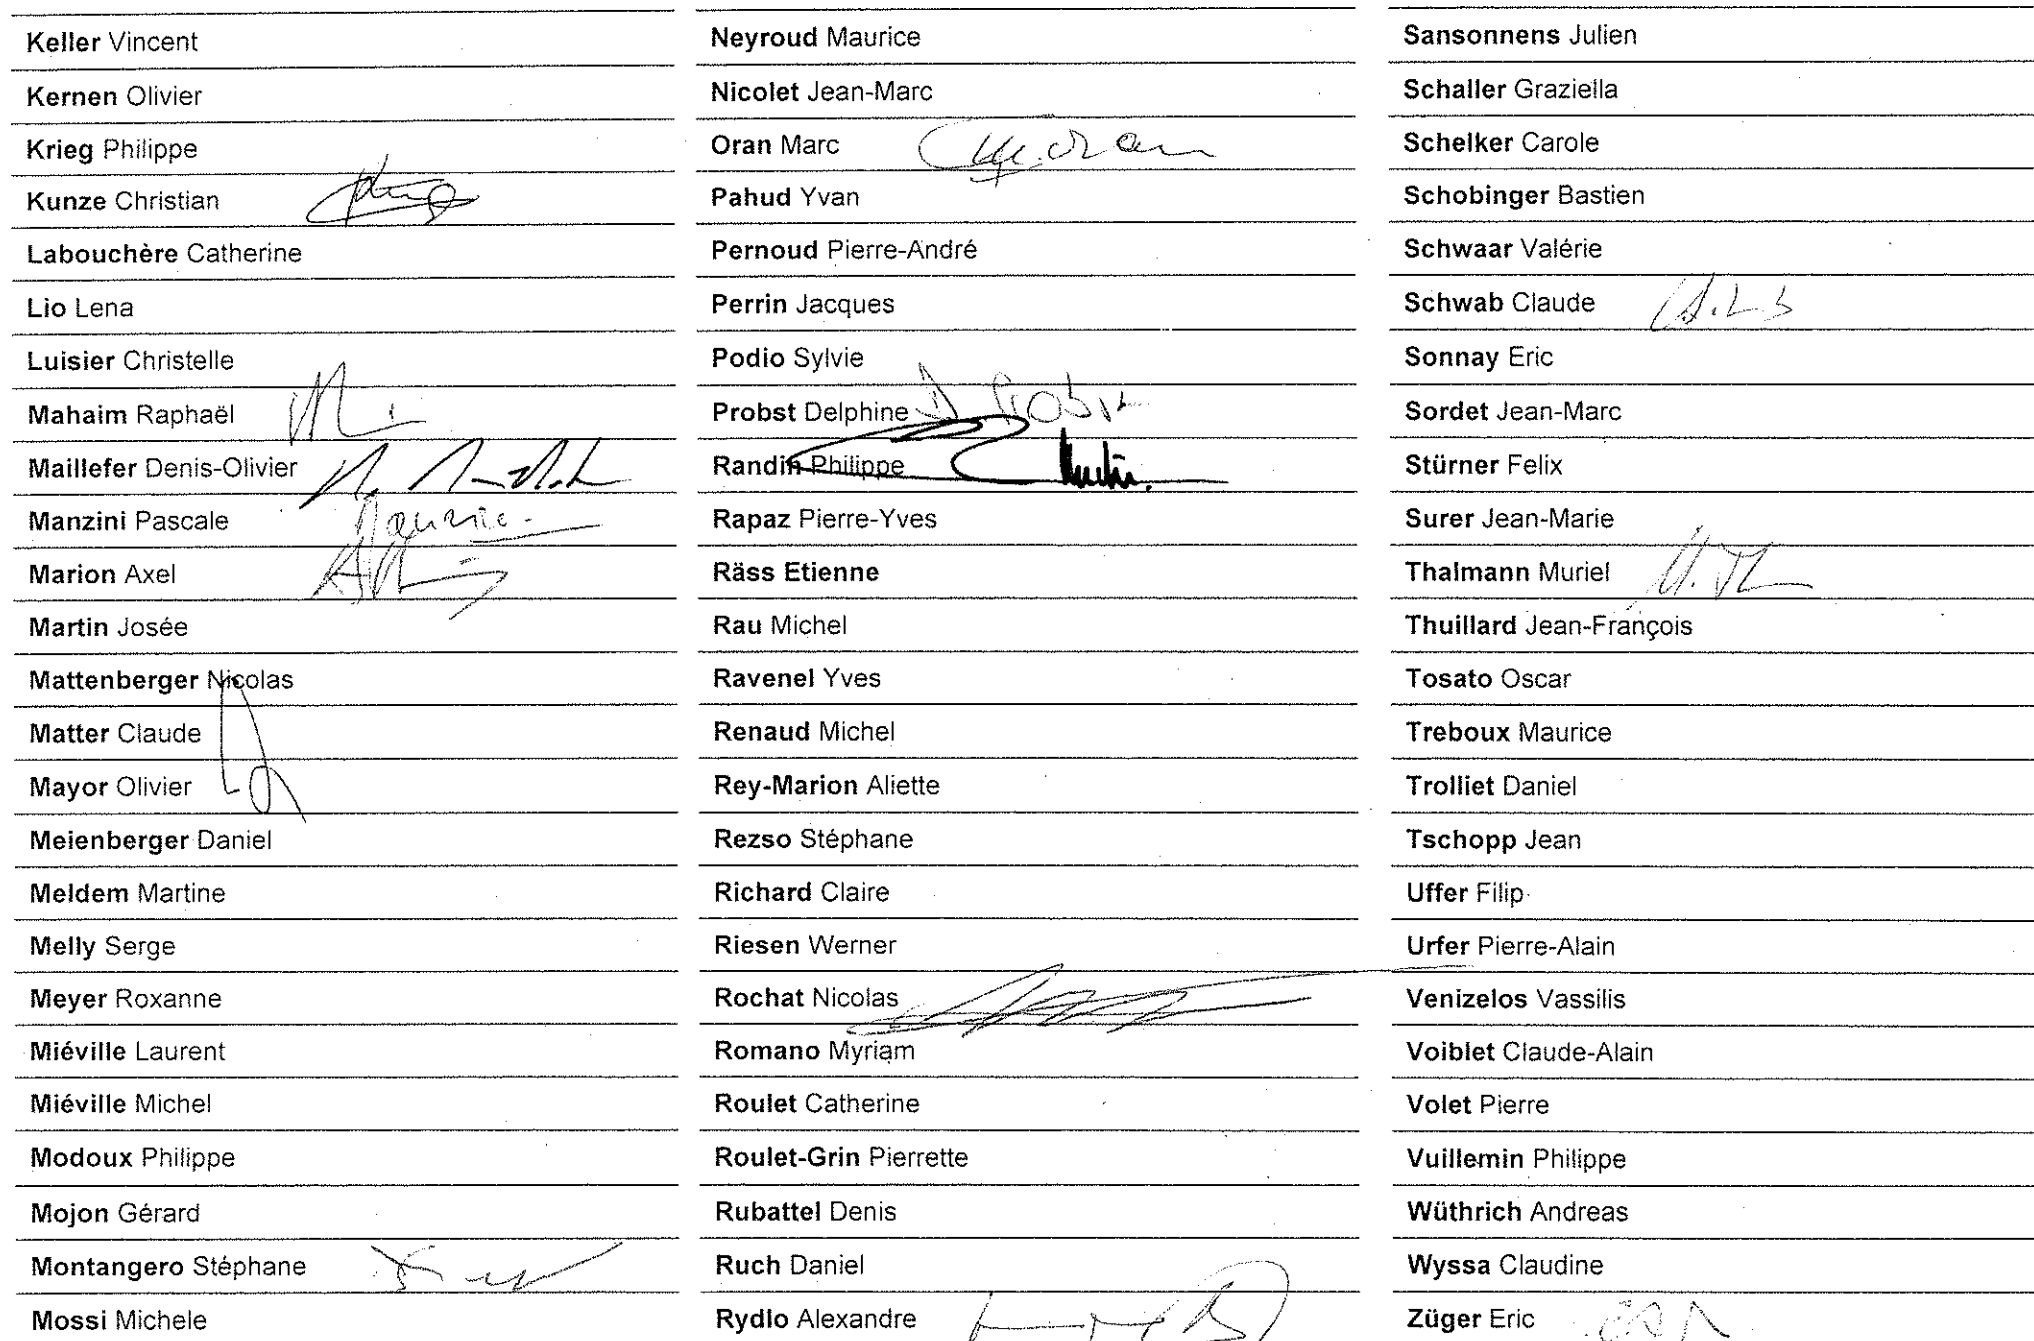 Keller Vincent
Kernen Olivier
Krieg Philippe
Kunze Christian
Labouchère Catherine
Lio Lena
Luisier Christelle
Mahaim Raphaël
Maillefer Denis-Olivier
Manzini Pascale
Marion Axel
Martin Josée
Mattenberger Nicolas
Matter Claude
Mayor Olivier
Meienberger Daniel
Meldem Martine
Melly Serge
Meyer Roxanne
Miéville Laurent
Miéville Michel
Modoux Philippe
Mojon Gérard
Montangero Stéphane
Mossi Michele
Neyroud Maurice
Nicolet Jean-Marc
Oran Marc
Pahud Yvan
Pernoud Pierre-André
Perrin Jacques
Podio Sylvie
Probst Delphine D Probst
Randin Philippe
Rapaz Pierre-Yves
Räss Etienne
Rau Michel
Ravenel Yves
Renaud Michel
Rey-Marion Aliette
Rezso Stéphane
Richard Claire
Riesen Werner
Rochat Nicolas
Romano Myriam
Roulet Catherine
Roulet-Grin Pierrette
Rubattel Denis
Ruch Daniel
Rydlo Alexandre
Sansonnens Julien
Schaller Graziella
Schelker Carole
Schobinger Bastien
Schwaar Valérie
Schwab Claude
Sonnay Eric
Sordet Jean-Marc
Stürner Felix
Surer Jean-Marie
Thalmann Muriel
Thuillard Jean-François
Tosato Oscar
Treboux Maurice
Trolliet Daniel
Tschopp Jean
Uffer Filip
Urfer Pierre-Alain
Venizelos Vassilis
Voiblet Claude-Alain
Volet Pierre
Vuillemin Philippe
Wüthrich Andreas
Wyssa Claudine
Züger Eric